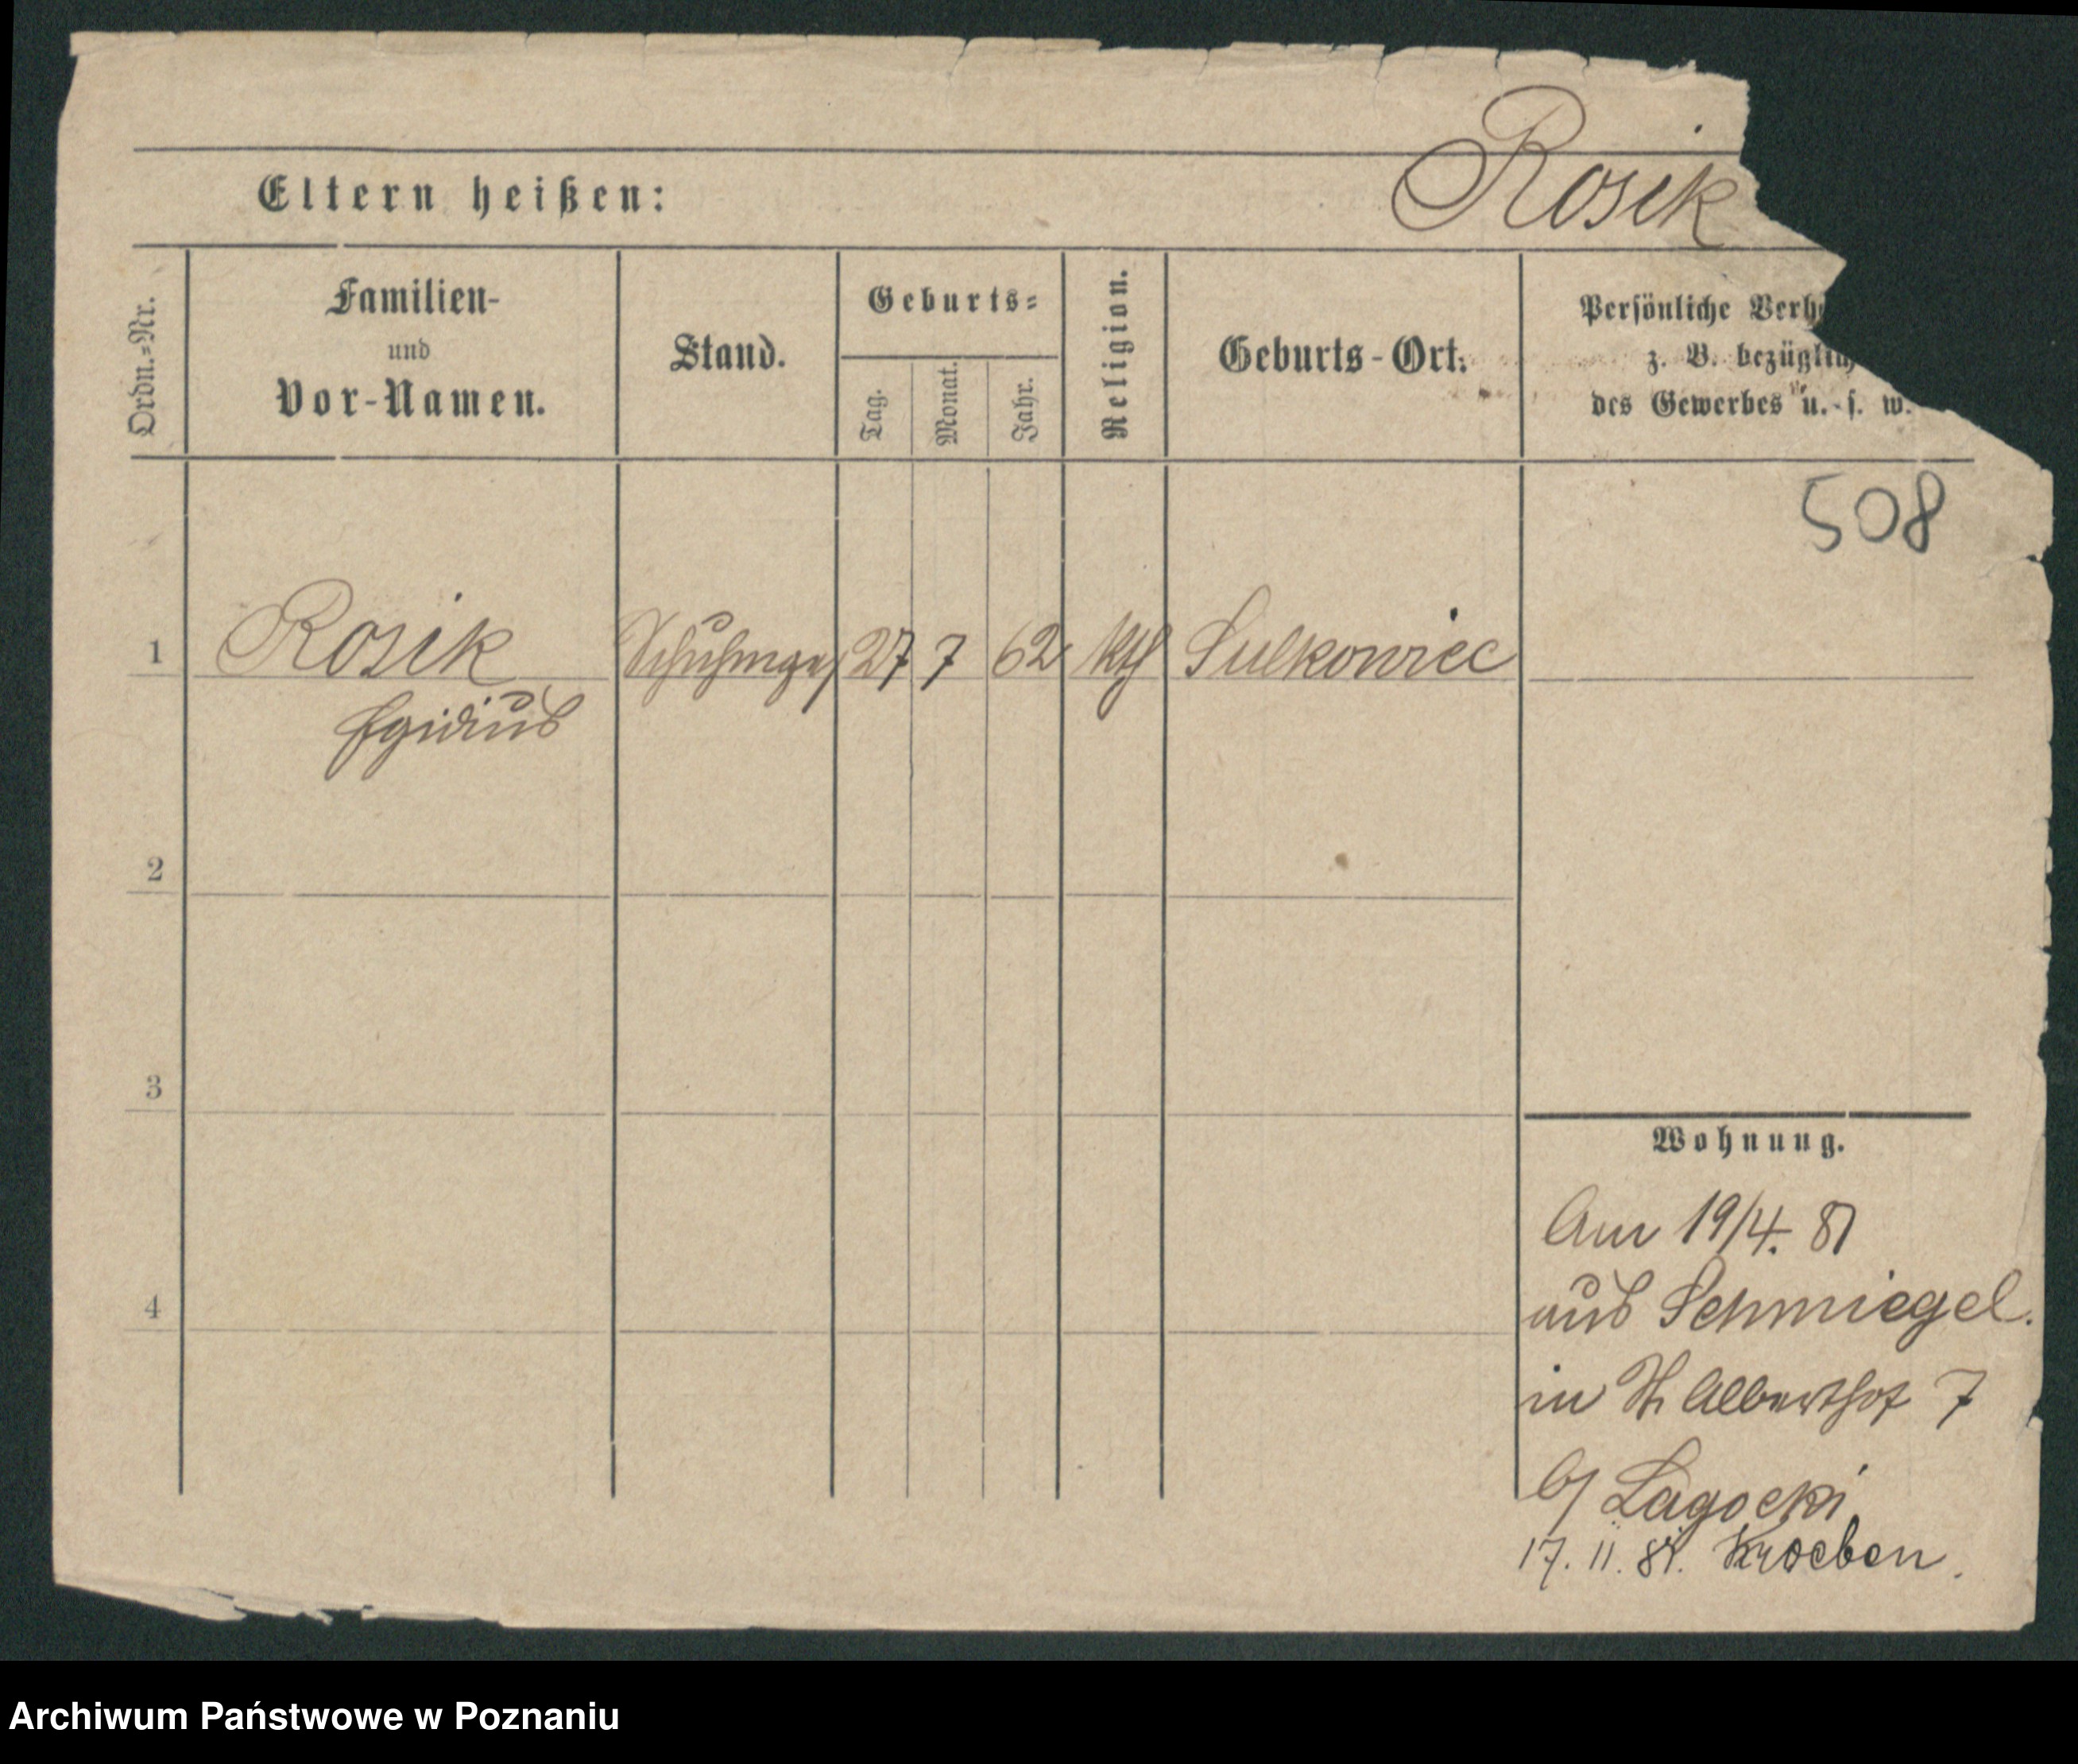 Rosik
Eltern heißen:
Ordn.-Nr.
Familien-
und
Vor-Namen.
Stand.
Geburts-
Tag.
Monat.
Jahr.
Religion.
Geburts-Ort.
Persönliche Verh
z. B. bezüglich
des Gewerbes u. s. w.
508
1 Rosik 27 7 62 kth Sulkowiec
Egidius
2
3
4
Wohnung.
Am 19/4. 81
aus Schmiegel.
in St. Alberthof 7
b/ Lagocki
17. 11. 81. Kroeben.
Archiwum Państwowe w Poznaniu